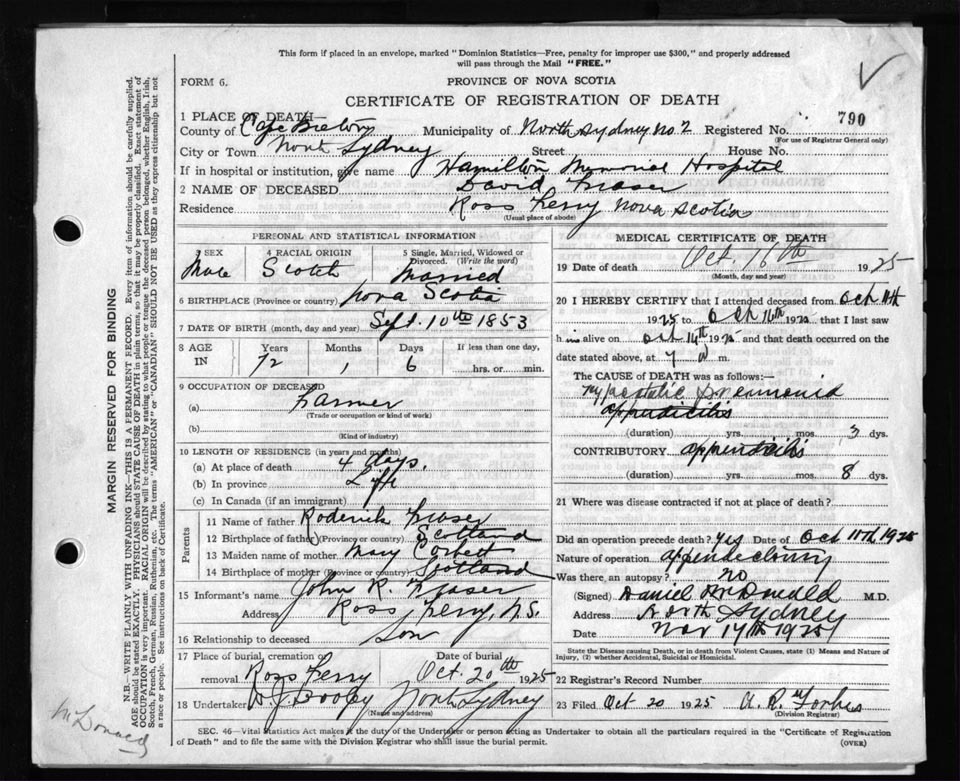 This form if placed in an envelope, marked "Dominion Statistics—Free, penalty for improper use $300," and properly addressed
will pass through the Mail "FREE."
FORM 6.
PROVINCE OF NOVA SCOTIA
CERTIFICATE OF REGISTRATION OF DEATH
1 PLACE OF DEATH—
County of Cape Breton Municipality of North Sydney No 2 Registered No. 790
(For use of Registrar General only)
City or Town North Sydney Street House No.
If in hospital or institution, give name Hamilton Memorial Hospital
2 NAME OF DECEASED David Fraser
Residence Ross Ferry Nova Scotia
(Usual place of abode)
PERSONAL AND STATISTICAL INFORMATION
3 SEX Male
4 RACIAL ORIGIN Scotch
5 Single, Married, Widowed or Divorced. (Write the word) Married
6 BIRTHPLACE (Province or country) Nova Scotia
7 DATE OF BIRTH (month, day and year) Sept. 10th 1853
8 AGE IN Years 72 Months 1 Days 6 If less than one day, hrs. or min.
9 OCCUPATION OF DECEASED
(a) Farmer
(Trade or occupation or kind of work)
(b)
(Kind of industry)
10 LENGTH OF RESIDENCE (in years and months)
(a) At place of death 4 days.
(b) In province Life
(c) In Canada (if an immigrant)
Parents
11 Name of father Roderick Fraser
12 Birthplace of father (Province or country) Scotland
13 Maiden name of mother Mary Corbett
14 Birthplace of mother (Province or country) Scotland
15 Informant's name John R. Fraser
Address Ross Ferry, N.S.
16 Relationship to deceased Son
17 Place of burial, cremation or removal Ross Ferry Date of burial Oct. 20th 1925
18 Undertaker North Sydney
(Name and address)
MEDICAL CERTIFICATE OF DEATH
19 Date of death Oct. 16th 1925
(Month, day and year)
20 I HEREBY CERTIFY that I attended deceased from Oct 11th
1925 to Oct 16th 1925, that I last saw
him alive on Oct 1925 and that death occurred on the
date stated above, at m.
The CAUSE OF DEATH was as follows:—
Hypostatic pneumonia
appendicitis
(duration) yrs. mos. 3 dys.
CONTRIBUTORY appendicitis
(duration) yrs. mos. 8 dys.
21 Where was disease contracted if not at place of death?
Did an operation precede death? yes Date of Oct 11th 1925
Nature of operation appendectomy
Was there an autopsy? no
(Signed) Daniel McDonald M.D.
Address North Sydney
Date Nov 1925
State the Disease causing Death, or in death from Violent Causes, state (1) Means and Nature of
Injury, (2) whether Accidental, Suicidal or Homicidal.
22 Registrar's Record Number
23 Filed Oct 20 1925 A. R. Forbes
(Division Registrar)
SEC. 46—Vital Statistics Act makes it the duty of the Undertaker or person acting as Undertaker to obtain all the particulars required in the "Certificate of Registration
of Death" and to file the same with the Division Registrar who shall issue the burial permit.
(OVER)
MARGIN RESERVED FOR BINDING
N.B.—WRITE PLAINLY WITH UNFADING INK—THIS IS A PERMANENT RECORD. Every item of information should be carefully supplied.
AGE should be stated EXACTLY. PHYSICIANS should STATE CAUSE OF DEATH in plain terms, so that it may be properly classified. Exact statement of
OCCUPATION is very important. RACIAL ORIGIN will be described by stating to what people or tongue the deceased person belonged, whether English, Irish,
Scotch, French, German, Russian, Ruthenian, etc. The terms "AMERICAN" or "CANADIAN" SHOULD NOT BE USED as they express citizenship but not
a race or people. See instructions on back of Certificate.
McDonald